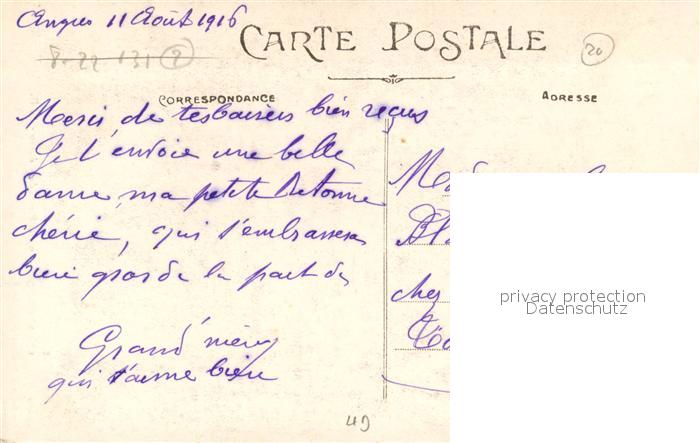 Angers 11 Août 1916
8-22 131 2
CARTE POSTALE
20
CORRESPONDANCE
ADRESSE
Merci de tes baisers bien reçus
Je t'envoie une belle
dame, ma petite Bretonne
chérie, qui t'embrassera
bien gros de la part de
Grand'mère
qui t'aime bien
chez
privacy protection
Datenschutz
49